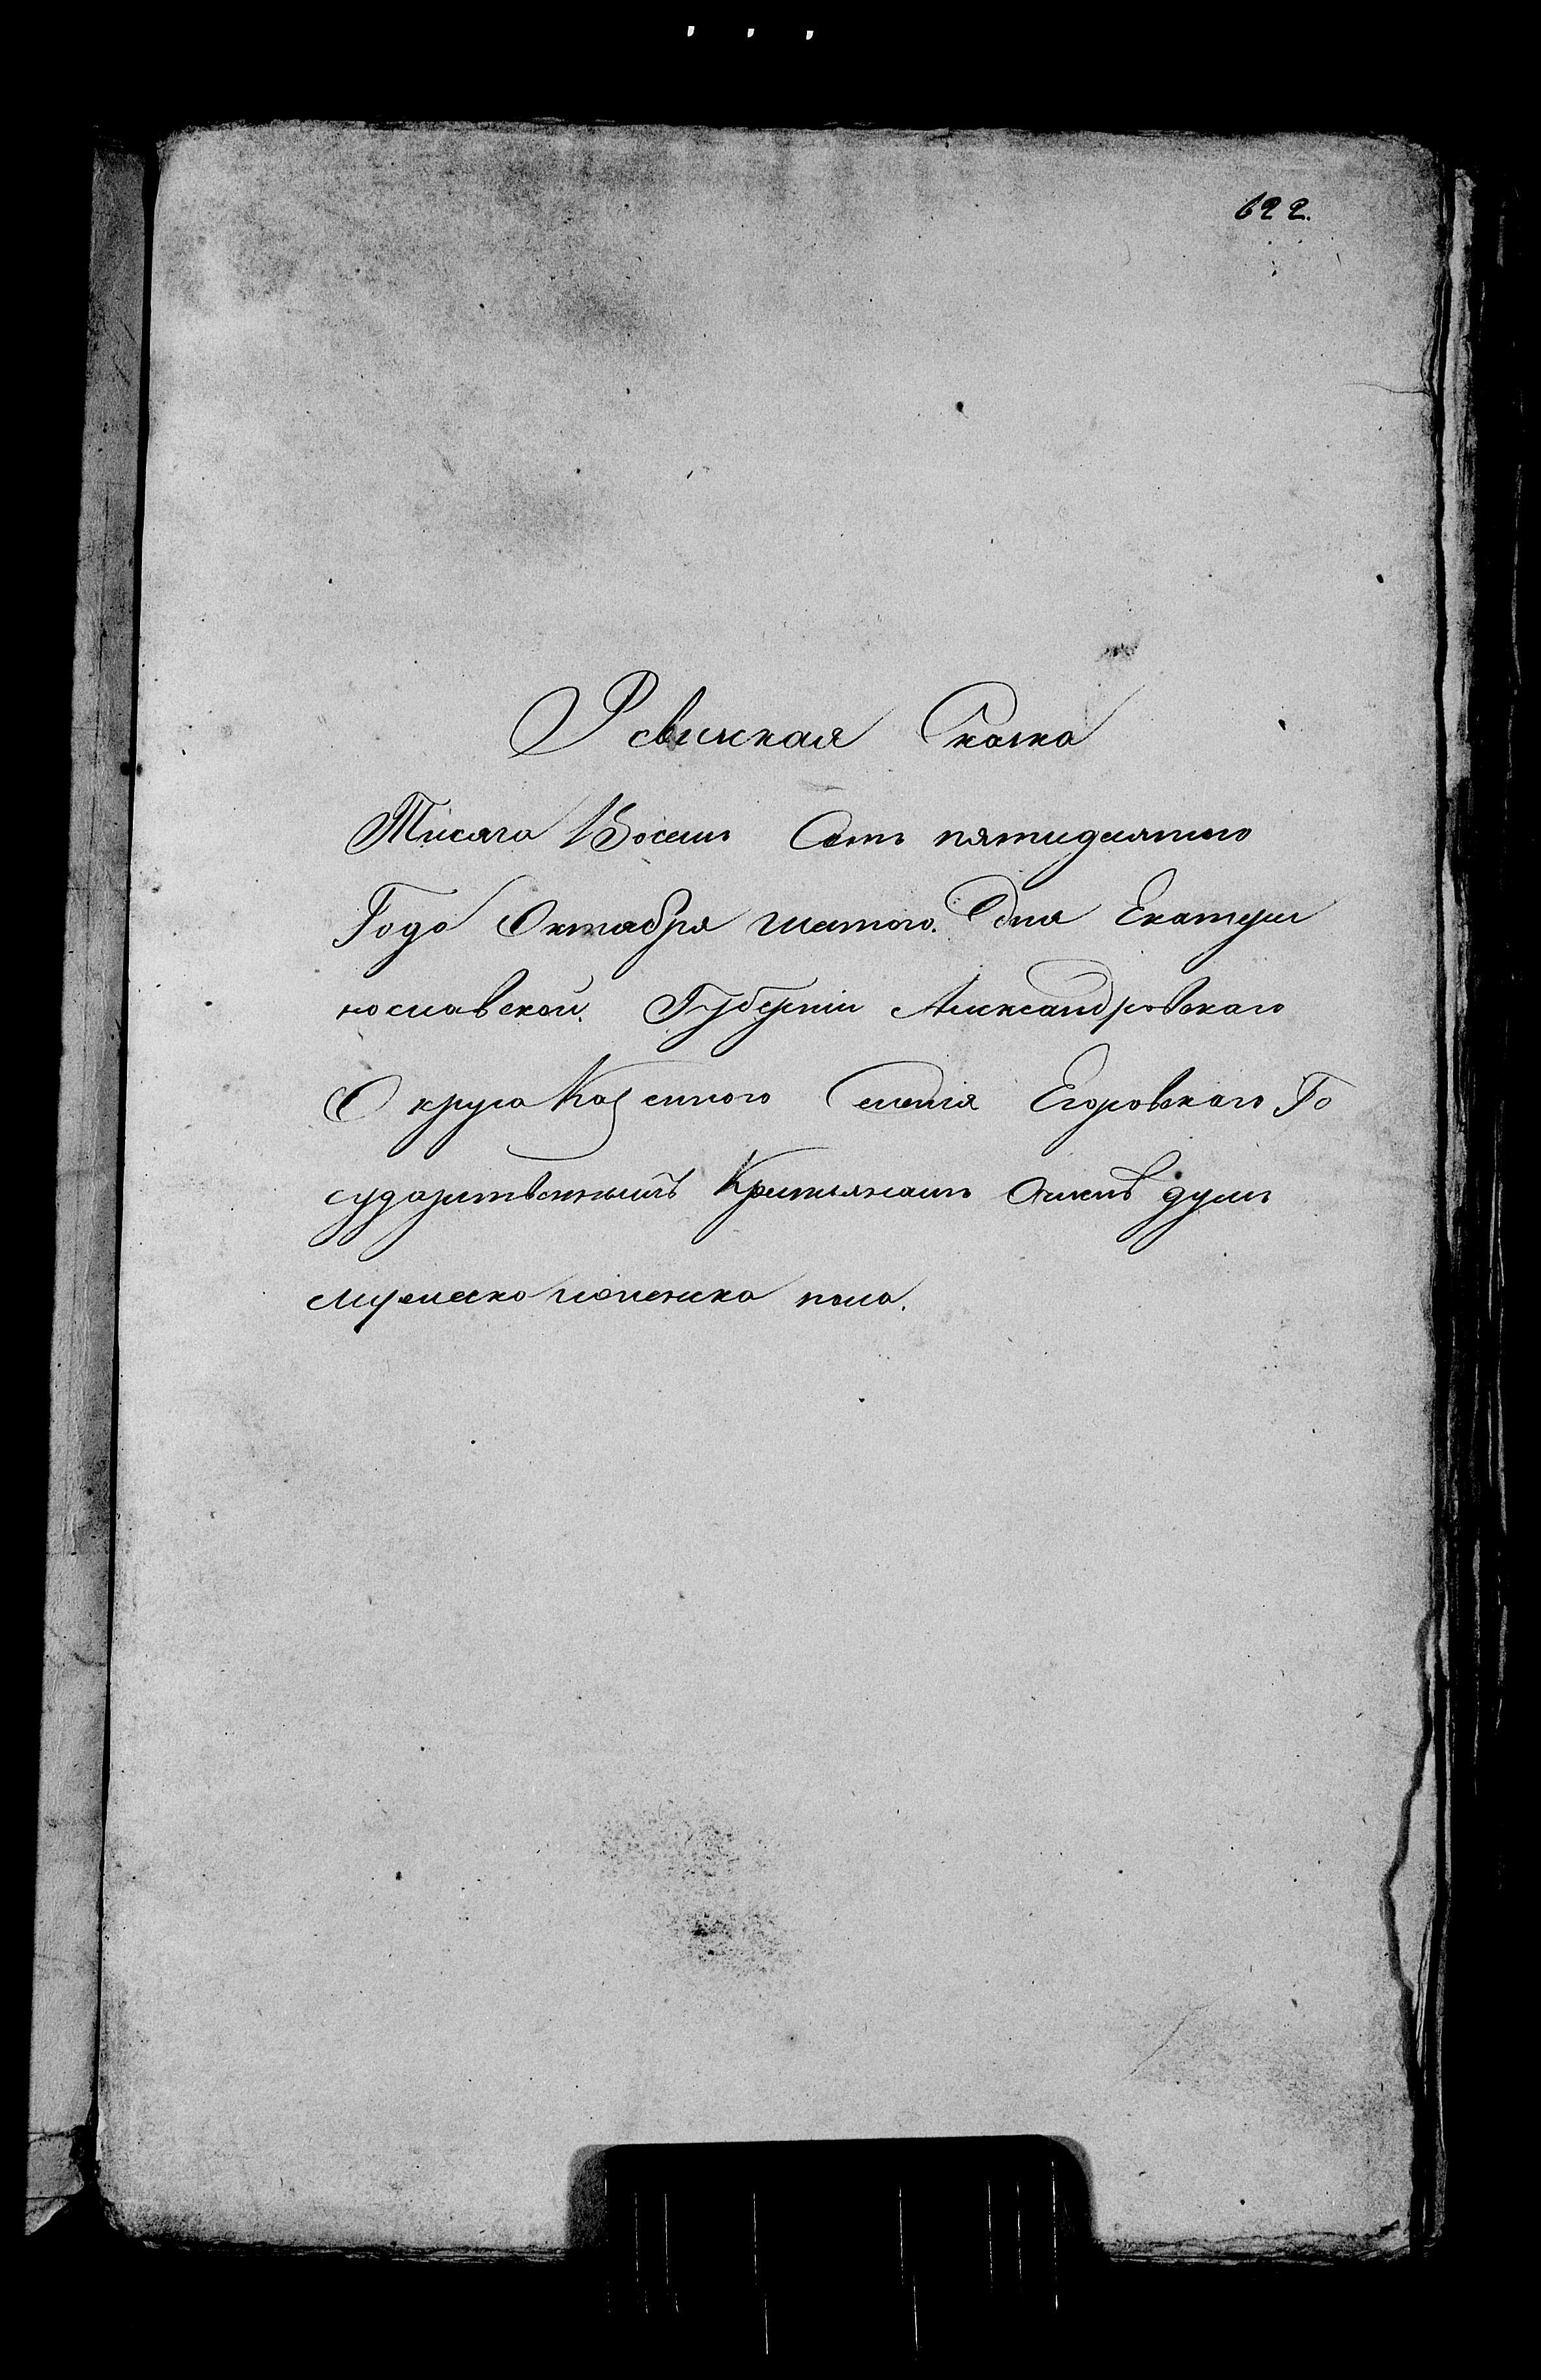 622.
Ревизская Сказка
Тисяча Восемъ Сотъ пятидесятого
Года Октября шестого Дня Екатери
нославской Губерніи Александровскаго
Округа Казенного Селенія Егоровскаго Го
сударственнымъ Крестьянамъ душъ
мужеска и женска пола.